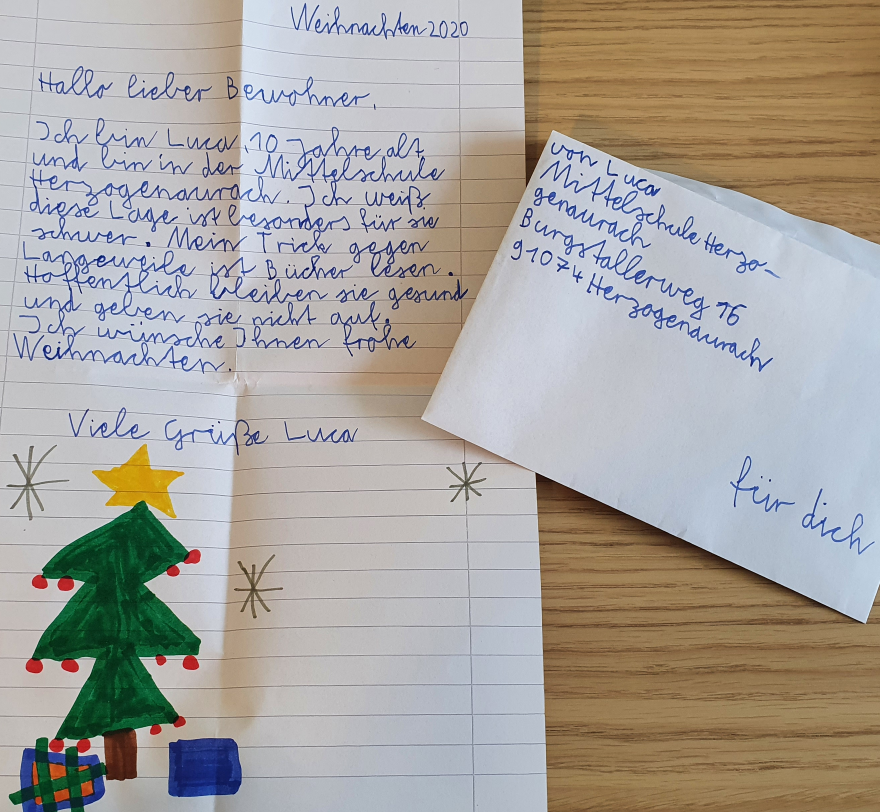 Weihnachten 2020
Hallo lieber Bewohner,
Ich bin Luca, 10 Jahre alt
und bin in der Mittelschule
Herzogenaurach. Ich weiß
diese Lage ist besonders für sie
schwer. Mein Trick gegen
Langeweile ist Bücher lesen.
Hoffentlich bleiben sie gesund
und geben sie nicht auf.
Ich wünsche Ihnen frohe
Weihnachten.
Viele Grüße Luca
von Luca
Mittelschule Herzo-
genaurach
Burgstallerweg 16
91074 Herzogenaurach
für dich